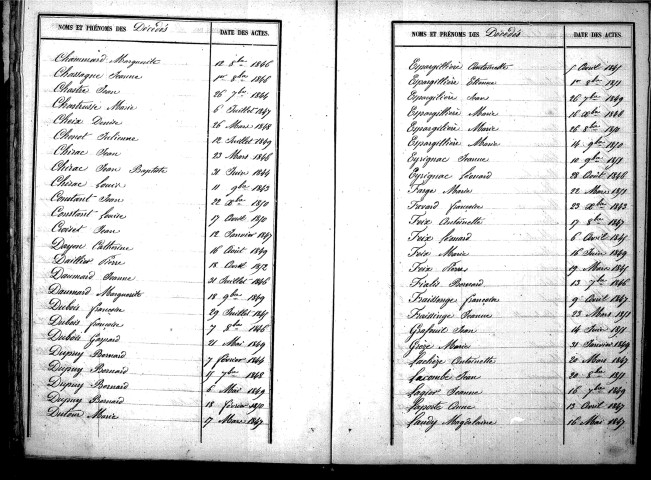 NOMS ET PRÉNOMS DES Décédés DATE DES ACTES.
Chammard Marguerite 12 8bre 1846
Chassagne Jeanne 1er 8bre 1846
Chastre Jean 26 7bre 1844
Chastrusse Marie 6 Juillet 1847
Cheix Denise 26 Mars 1848
Chenot Julienne 12 Juillet 1849
Chirac Jean 23 Mars 1846
Chirac Jean Baptiste 21 Juin 1844
Chirac Louis 11 9bre 1843
Constant Jean 22 Xbre 1850
Constant Louise 17 Avril 1850
Croizet Jean 12 Janvier 1847
Dayen Catherine 16 Août 1849
Dailler Pierre 18 Avril 1852
Daumard Jeanne 21 Juillet 1846
Daumard Marguerite 18 9bre 1849
Dubois françoise 29 Juillet 1845
Dubois françoise 7 8bre 1846
Dubois Gaspard 21 Mai 1849
Dupuy Bernard 7 février 1844
Dupuy Bernard 15 7bre 1848
Dupuy Bernard 6 Mai 1849
Dupuy Bernard 18 février 1850
Duteur Marie 17 Mars 1847
NOMS ET PRÉNOMS DES Décédés DATE DES ACTES.
Espargillière Antoinette 5 Avril 1845
Espargillière Etienne 1er 8bre 1851
Espargilière Jean 26 7bre 1849
Espargillière Marie 16 Xbre 1848
Espargillière Marie 26 8bre 1850
Espargillière Marie 14 9bre 1850
Eyrignac Jeanne 10 9bre 1851
Eyrignac Léonard 28 Août 1846
Farge Marie 22 Mars 1851
Favard françoise 23 Xbre 1843
Feix Antoinette 17 8bre 1847
Feix Léonard 6 Avril 1845
Feix Marie 16 Juin 1849
Feix Pierre 19 Mars 1845
Fialis Bernard 13 7bre 1846
Fraislenge françoise 9 Avril 1847
Fraislenge Jeanne 23 Mars 1851
Grafeuil Jean 14 Juin 1851
Grèze Marie 31 Janvier 1849
Lachèze Antoinette 20 Mars 1847
Lacombe Jean 20 8bre 1851
Lagier Jeanne 16 7bre 1849
Laporte Anne 13 Avril 1847
Landy Magdelaine 16 Mai 1847